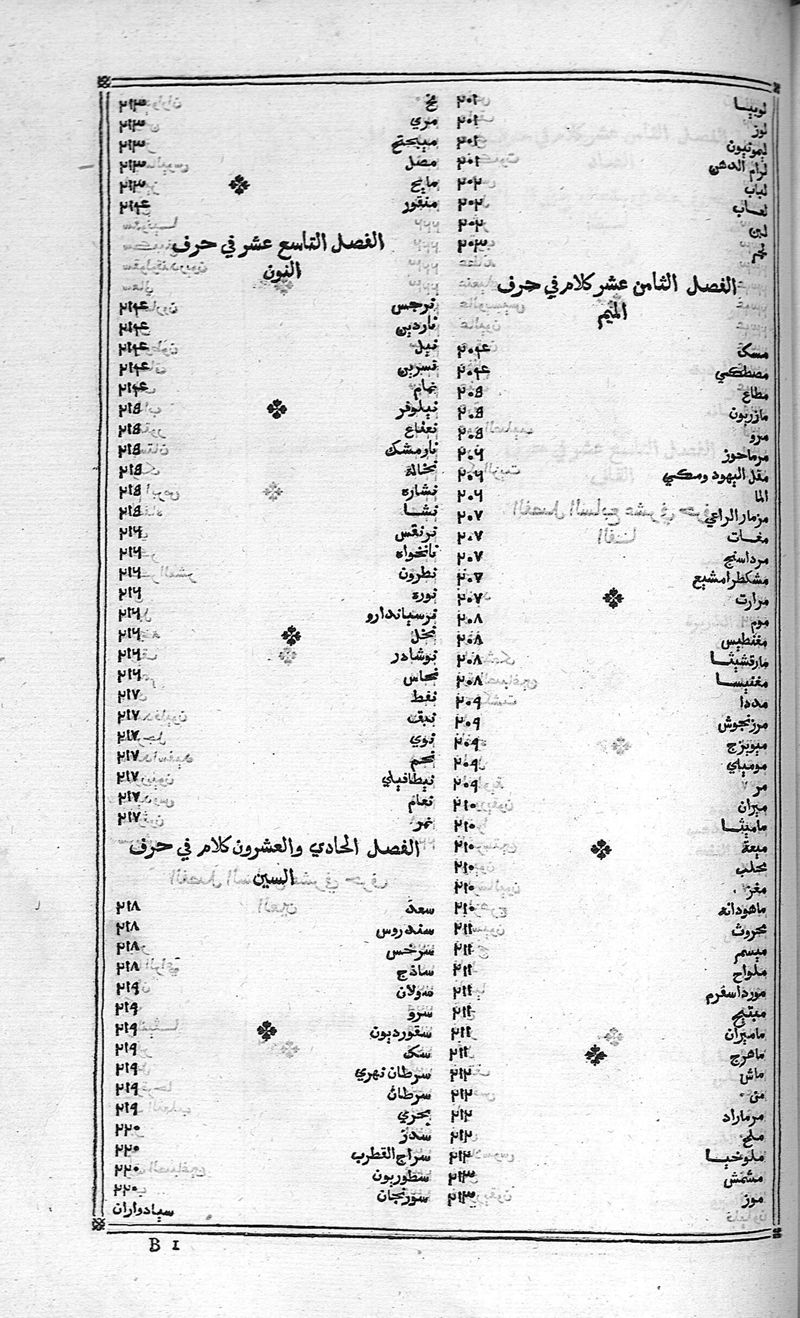 لوبيا ٢٠١
لوز ٢٠١
ليمونيون ٢٠١
لزام الدهن ٢٠١
لباب ٢٠٢
لعاب ٢٠٢
لبن ٢٠٢
لحم ٢٠٣
الفصل الثامن عشر كلام في حرف
الميم
مسك ٢٠٤
مصطكي ٢٠٤
مطاع ٢٠٥
مازريون ٢٠٥
مرو ٢٠٥
مرماحوز ٢٠٦
مقل اليهود ومكي ٢٠٦
الما ٢٠٦
مزمار الراعي ٢٠٧
مغاث ٢٠٧
مرداسنج ٢٠٧
مشكطرامشيع ٢٠٧
مرارت ٢٠٧
موم ٢٠٨
مغنطيس ٢٠٨
مارقشيثا ٢٠٨
مغنيسا ٢٠٨
مددا ٢٠٩
مرزنجوش ٢٠٩
ميويزج ٢٠٩
موميلي ٢٠٩
مر ٢٠٩
ميزان ٢١٠
ماميثا ٢١٠
ميعة ٢١٠
محلب ٢١٠
مغز ٢١٠
ماهودانه ٢١٠
محروث ٢١١
ميسم ٢١١
ملواح ٢١١
مورداسفرم ٢١١
مبتج ٢١١
ماميران ٢١١
ماهزج ٢١١
ماش ٢١٢
من ٢١٢
مرماراد ٢١٢
ملح ٢١٢
ملوخيا ٢١٢
مشمش ٢١٣
موز ٢١٣
مخ ٢١٣
مري ٢١٣
ميبختج ٢١٣
مصل ٢١٣
مايح ٢١٣
منقور ٢١٤
الفصل التاسع عشر في حرف
النون
نرجس ٢١٤
ناردين ٢١٤
نيل ٢١٤
نسرين ٢١٤
نمام ٢١٤
نيلوفر ٢١٥
نعناع ٢١٥
نارمشك ٢١٥
نخالة ٢١٥
نشاره ٢١٥
نشا ٢١٥
نرنقس ٢١٦
نانخواه ٢١٦
نطرون ٢١٦
نوره ٢١٦
نرسياندارو ٢١٦
نخل ٢١٦
نوشادر ٢١٦
نحاس ٢١٦
نفط ٢١٧
نبق ٢١٧
نوي ٢١٧
نجم ٢١٧
نيطافيلي ٢١٧
نعام ٢١٧
نمر ٢١٧
الفصل الحادي والعشرون كلام في حرف
السين
سعد ٢١٨
سندروس ٢١٨
سرخس ٢١٨
ساذج ٢١٨
سولان ٢١٩
سرو ٢١٩
سقورديون ٢١٩
سك ٢١٩
سرطان نهري ٢١٩
سرطان ٢١٩
بحري
سدر ٢٢٠
سراج القطرب ٢٢٠
سطوريون ٢٢٠
سورنجان ٢٢٠
سيادواران
B 1